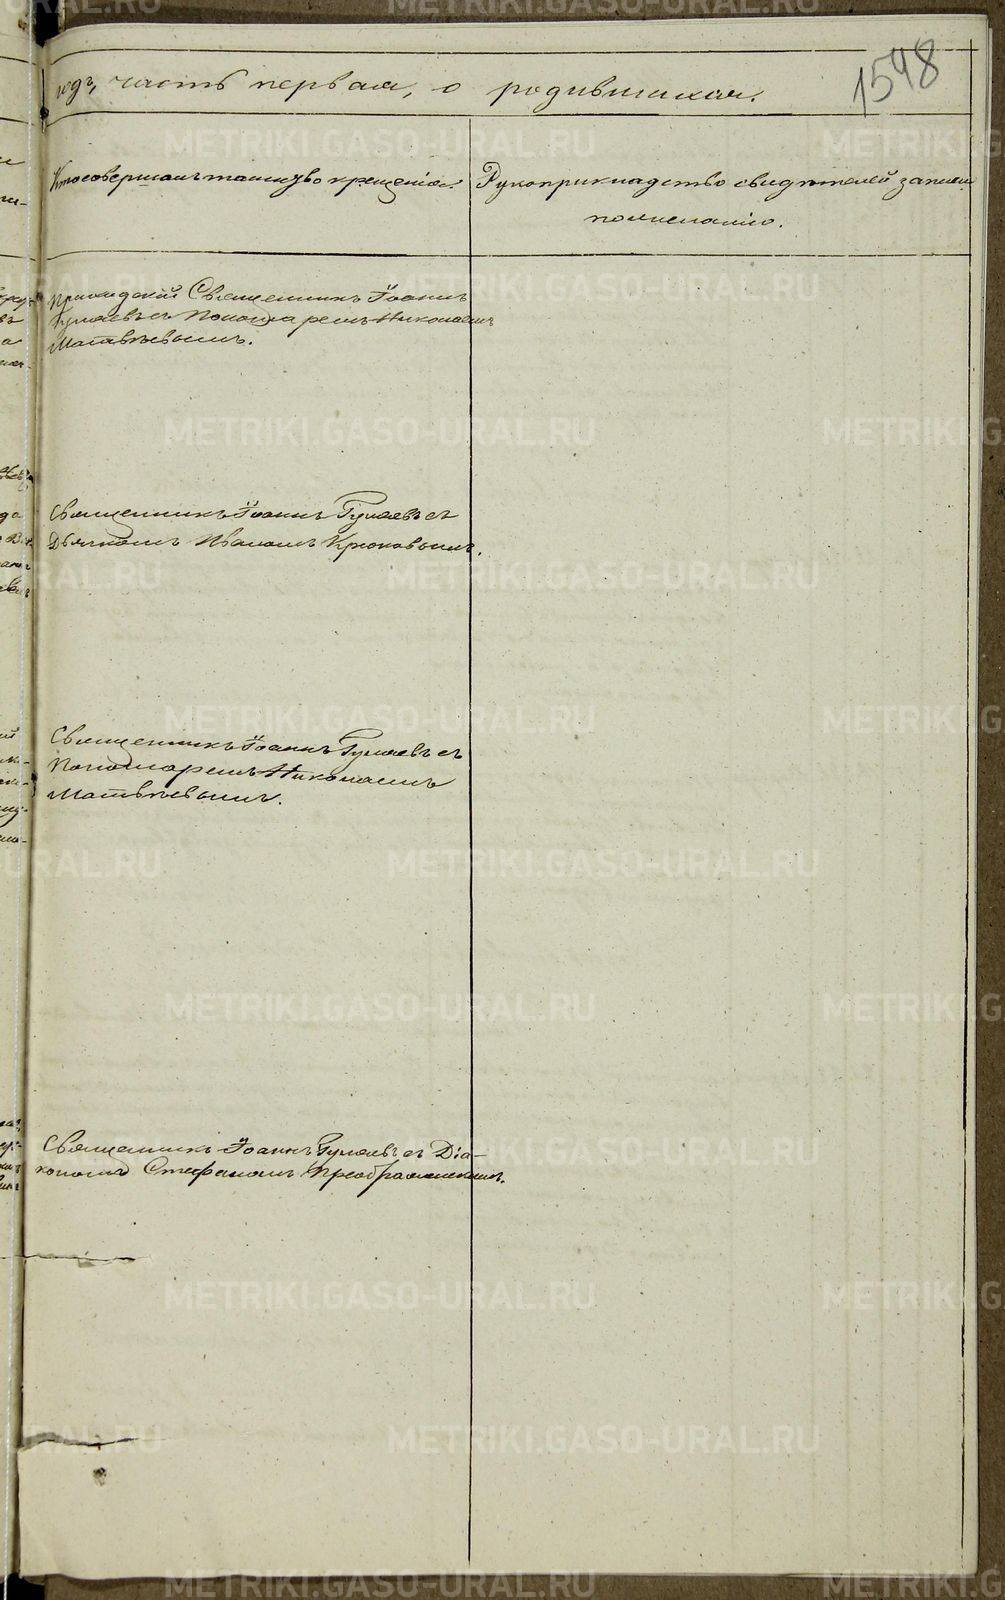 1548
годъ, часть первая, о родившихся.
Кто совершалъ таинство крещенія.
Рукоприкладство свидѣтелей записи
по желанію.
Приходскій Священникъ Іоаннъ
Гуляевъ съ Пономаремъ Николаемъ
Матвѣевымъ.
Священникъ Іоаннъ Гуляевъ съ
Дьячкомъ Иваномъ Крюковымъ.
Священникъ Іоаннъ Гуляевъ съ
Пономаремъ Николаемъ
Матвѣевымъ.
Священникъ Іоаннъ Гуляевъ съ Діа-
кономъ Стефаномъ Преображенскимъ.
METRIKI.GASO-URAL.RU